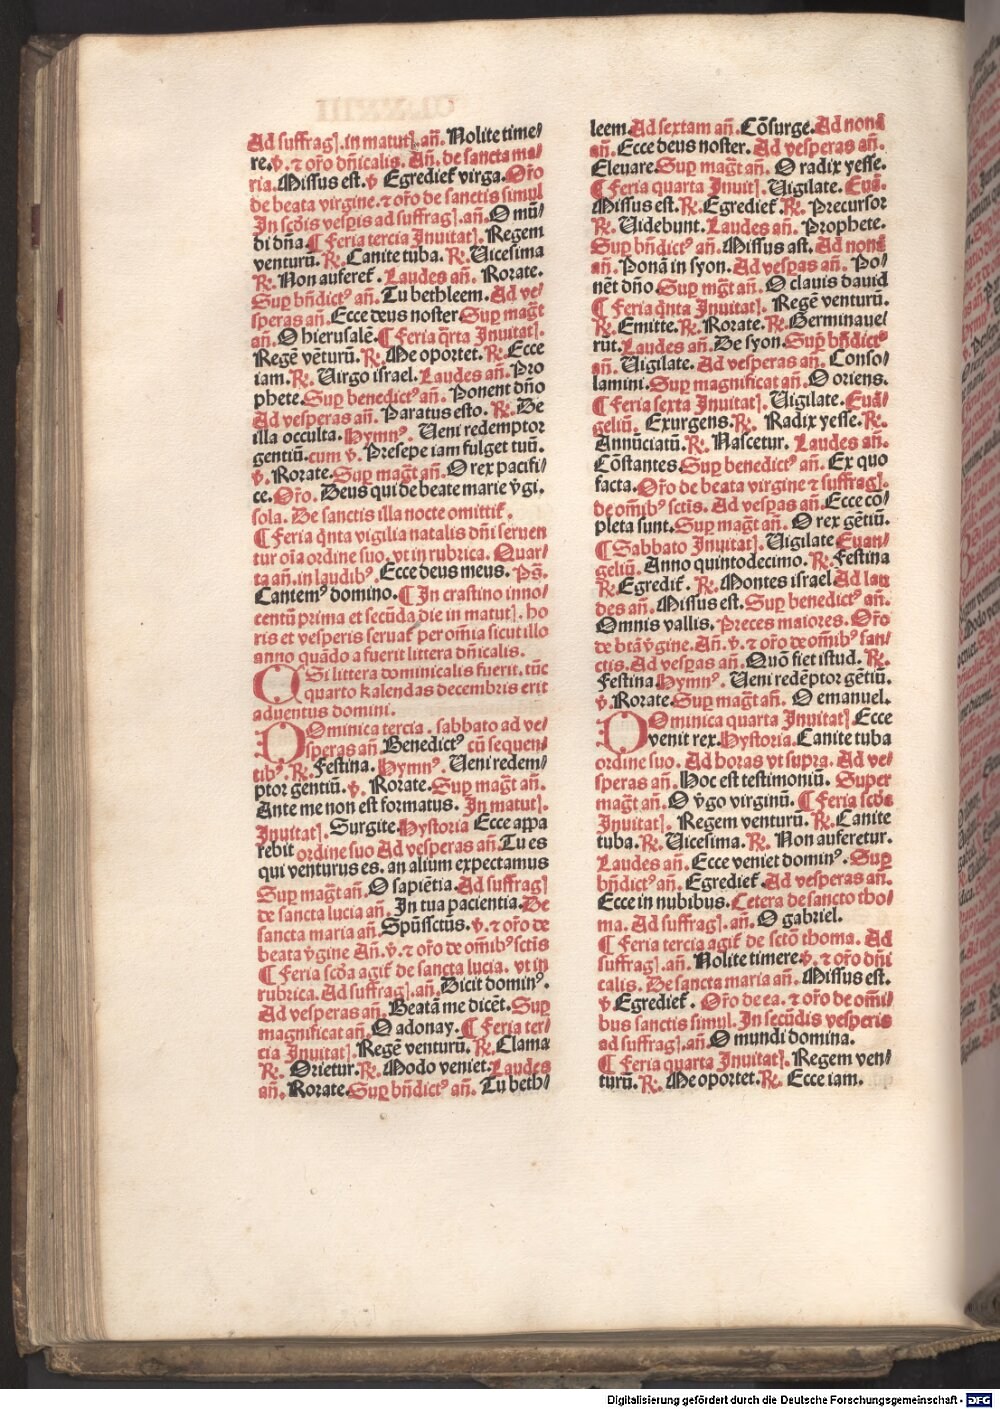 Ad suffragꝭ. in matutꝭ. añ. Nolite time⸗
re. ꝟ. ⁊ or̃o dñicalis. Añ. de sancta ma⸗
ria. Missus est. ꝟ Egredieť virga. Or̃o
de beata virgine. ⁊ or̃o de sanctis simul
In scďis vesꝑis ad suffragꝭ. añ. O mũ⸗
di dña. ¶ Feria tercia Inuitatꝭ. Regem
venturũ. ℞. Canite tuba. ℞. Uicesima
℞. Non auferet̃. Laudes añ. Rorate.
Suꝑ bñdictꝰ añ. Tu bethleem. Ad ve⸗
speras añ. Ecce deus noster Suꝑ mag̃t
añ. O hierusalẽ. ¶ Feria q̃rta Inuitatꝭ.
Regẽ vẽturũ. ℞. Me oportet. ℞. Ecce
iam. ℞. Uirgo israel. Laudes añ. Pro
phete. Suꝑ benedictꝰ añ. Ponent dño
Ad vesperas añ. Paratus esto. ℞. De
illa occulta. Hymnꝰ. Ueni redemptor
gentiũ. cum ꝟ. Presepe iam fulget tuũ.
ꝟ. Rorate. Suꝑ mag̃t añ. O rex pacifi⸗
ce. Or̃o. Deus qui de beate marie ꝟ̃gi.
sola. De sanctis illa nocte omittit̃.
¶ Feria q̃nta vigilia natalis dñi seruen
tur oĩa ordine suo. vt in rubrica. Quar⸗
ta añ. in laudibꝰ. Ecce deus meus. Pẞ.
Cantemꝰ domino. ¶ In crastino inno⸗
centũ prima et secũda die in matutꝭ. ho
ris et vesperis seruat̃ per om̃ia sicut illo
anno quãdo a fuerit littera dñicalis.
C Si littera dominicalis fuerit. tũc
quarto kalendas decembris erit
aduentus domini.
Dominica tercia. sabbato ad ve⸗
speras añ Benedictꝰ cũ sequen⸗
tibꝰ. ℞. Festina. Hymnꝰ. Ueni redem⸗
ptor gentiũ. ꝟ. Rorate. Suꝑ mag̃t añ.
Ante me non est formatus. In matutꝭ.
Inuitatꝭ. Surgite. Hystoria Ecce appa
rebit ordine suo Ad vesperas añ. Tu es
qui venturus es. an alium expectamus
Suꝑ mag̃t añ. O sapiẽtia. Ad suffragꝭ
de sancta lucia añ. In tua pacientia. De
sancta maria añ. Spũssctũs. ꝟ. ⁊ or̃o de
beata ꝟ̃gine Añ. ꝟ. ⁊ or̃o de om̃ibꝰ sctis
¶ Feria scďa agit̃ de sancta lucia. vt in
rubrica. Ad suffragꝭ. añ. Dicit dominꝰ.
Ad vesperas añ. Beatã me dicẽt. Suꝑ
magnificat añ. O adonay. ¶ Feria ter⸗
cia Inuitatꝭ. Regẽ venturũ. ℞. Clama
℞. Orietur. ℞. Modo veniet. Laudes
añ. Rorate. Suꝑ bñdictꝰ añ. Tu beth⸗
leem. Ad sextam añ. Cõsurge. Ad nonã
añ. Ecce deus noster. Ad vesperas añ.
Eleuare. Suꝑ mag̃t añ. O radix yesse.
¶ Feria quarta Inuitꝭ. Uigilate. Euã.
Missus est. ℞. Egrediet̃. ℞. Precursor
℞. Uidebunt. Laudes añ. Prophete.
Suꝑ bñdictꝰ añ. Missus ast. Ad nonã
añ. Ponã in syon. Ad vesꝑas añ. Po⸗
nẽt dño. Suꝑ mg̃t añ. O clauis dauid
¶ Feria q̃nta Inuitatꝭ. Regẽ venturũ.
℞. Emitte. ℞. Rorate. ℞. Germinaue⸗
rut. Laudes añ. De syon. Suꝑ bñdictꝰ
añ. Uigilate. Ad vesperas añ. Conso⸗
lamini. Suꝑ magnificat añ. O oriens.
¶ Feria sexta Inuitatꝭ. Uigilate. Euã⸗
geliũ. Exurgens. ℞. Radix yesse. ℞.
Annũciatũ. ℞. Nascetur. Laudes añ.
Cõstantes. Suꝑ benedictꝰ añ. Ex quo
facta. Or̃o de beata virgine ⁊ suffragꝭ.
de om̃ibꝰ sctis. Ad vesꝑas añ. Ecce cõ⸗
pleta sunt. Suꝑ mag̃t añ. O rex gẽtiũ.
¶ Sabbato Inuitatꝭ. Uigilate Euan⸗
geliũ. Anno quintodecimo. ℞. Festina
℞. Egredit̃. ℞. Montes israel Ad lau
des añ. Missus est. Suꝑ benedictꝰ añ.
Omnis vallis. Preces maiores. Or̃o
de btã ꝟ̃gine. Añ. ꝟ. ⁊ or̃o de om̃ibꝰ san⸗
ctis. Ad vesꝑas añ. Quõ fiet istud. ℞.
Festina Hymnꝰ. Ueni redẽptor gẽtiũ.
ꝟ. Rorate. Suꝑ mag̃t añ. O emanuel.
Dominica quarta Inuitatꝭ Ecce
venit rex. Hystoria. Canite tuba
ordine suo. Ad horas vt supra. Ad ve⸗
speras añ. Hoc est testimoniũ. Super
mag̃t añ. O ꝟ̃go virginũ. ¶ Feria scďa
Inuitatꝭ. Regem venturũ. ℞. Canite
tuba. ℞. Uicesima. ℞. Non auferetur.
Laudes añ. Ecce veniet dominꝰ. Suꝑ
bñdictꝰ añ. Egrediet̃. Ad vesperas añ.
Ecce in nubibus. Cetera de sancto tho⸗
ma. Ad suffragꝭ. añ. O gabriel.
¶ Feria tercia agit̃ de sctõ thoma. Ad
suffragꝭ. añ. Nolite timere. ꝟ. ⁊ or̃o dñi
calis. De sancta maria añ. Missus est.
ꝟ Egrediet̃. Or̃o de ea. ⁊ or̃o de om̃i⸗
bus sanctis simul. In secũdis vesperis
ad suffragꝭ. añ. O mundi domina.
¶ Feria quarta Inuitatꝭ. Regem ven⸗
turũ. ℞. Me oportet. ℞. Ecce iam.
Digitalisierung gefördert durch die Deutsche Forschungsgemeinschaft - DFG